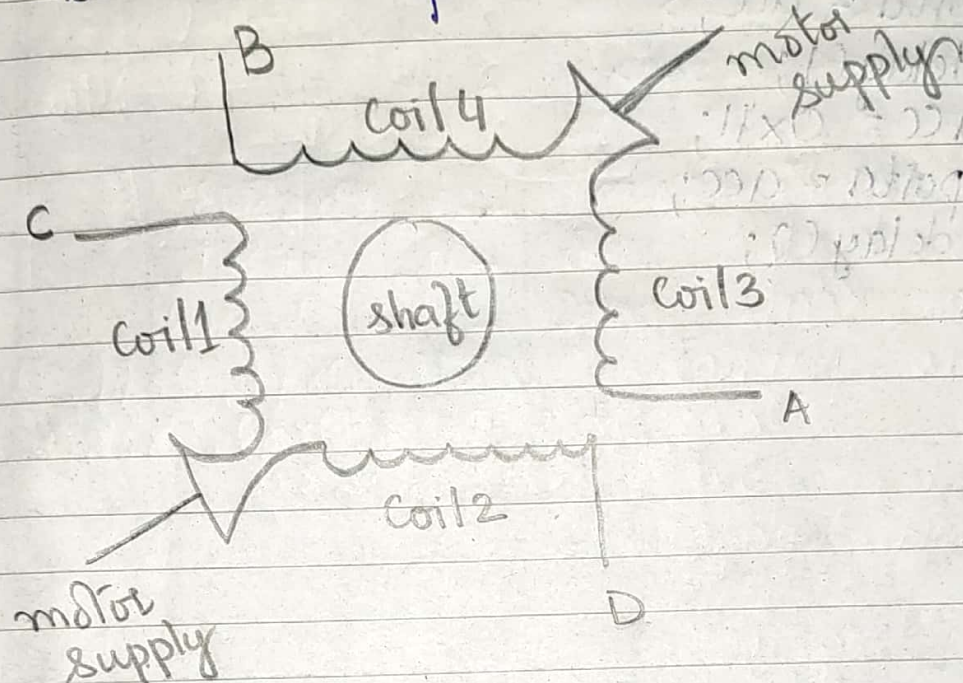 B
motor
supply
Coil 4
C
Coil 1
shaft
Coil 3
A
Coil 2
D
motor
supply